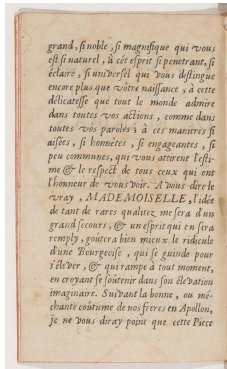 grand, si noble, si magnifique qui vous
est si naturel, à cét esprit si penetrant, si
éclairé, si universel qui vous distingue
encore plus que vôtre naissance, à cette
délicatesse que tout le monde admire
dans toutes vos actions, comme dans
toutes vos paroles; à ces manieres si
aisées, si honnêtes, si engageantes, si
peu communes, qui vous attirent l'esti-
me & le respect de tous ceux qui ont
l'honneur de vous voir. A vous dire le
vray, MADEMOISELLE, l'idée
de tant de rares qualitez me sera d'un
grand secours, & un esprit qui en sera
remply, goûtera bien mieux le ridicule
d'une Bourgeoise, qui se guinde pour
s'élever, & qui rampe à tout moment,
en croyant se soûtenir dans son élevation
imaginaire. Suivant la bonne, ou mé-
chante coûtume de nos freres en Apollon,
je ne vous diray point que cette Piece